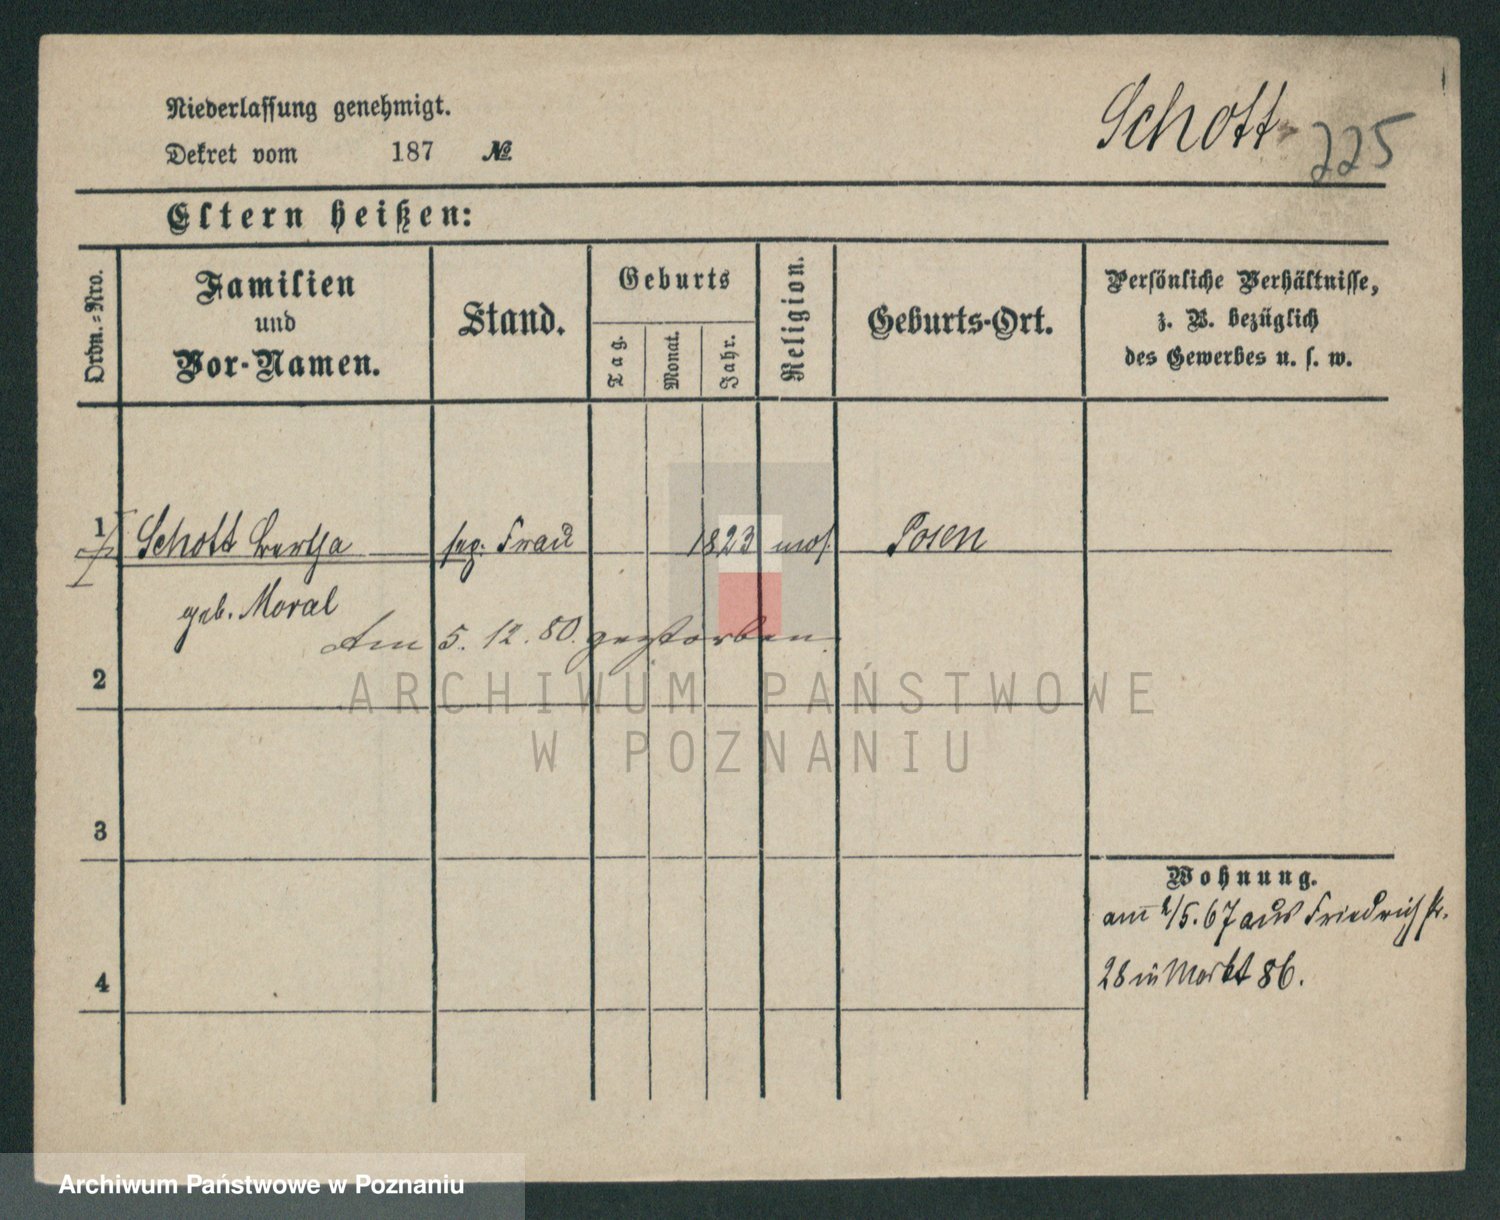 Niederlassung genehmigt.
Schott
225
Dekret vom 187 №
Eltern heißen:
Ordn.-Nro.
Familien
und
Vor-Namen.
Stand.
Geburts
Tag.
Monat.
Jahr.
Religion.
Geburts-Ort.
Persönliche Verhältnisse,
z. B. bezüglich
des Gewerbes u. s. w.
1 Schott Bertha Frau 1823 mos. Posen
geb. Moral
Am 5. 12. 80. gestorben.
2
ARCHIWUM PAŃSTWOWE
W POZNANIU
3
Wohnung.
am /5. 67 aus Friedrichstr.
4
28 in Markt 86.
Archiwum Państwowe w Poznaniu